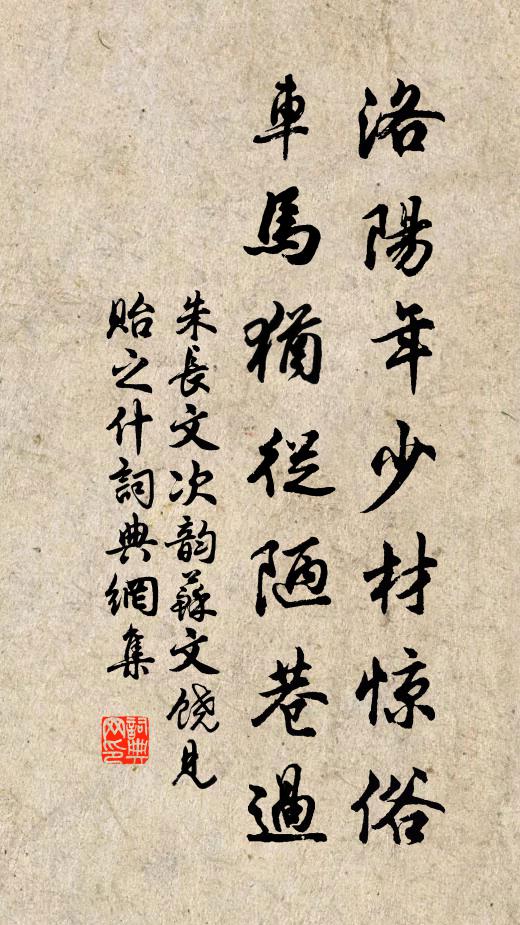 洛陽年少材惊俗
車馬猶從陋巷過
朱長文次韵蘇文饒見
貽之什詞典網集
詞典网印